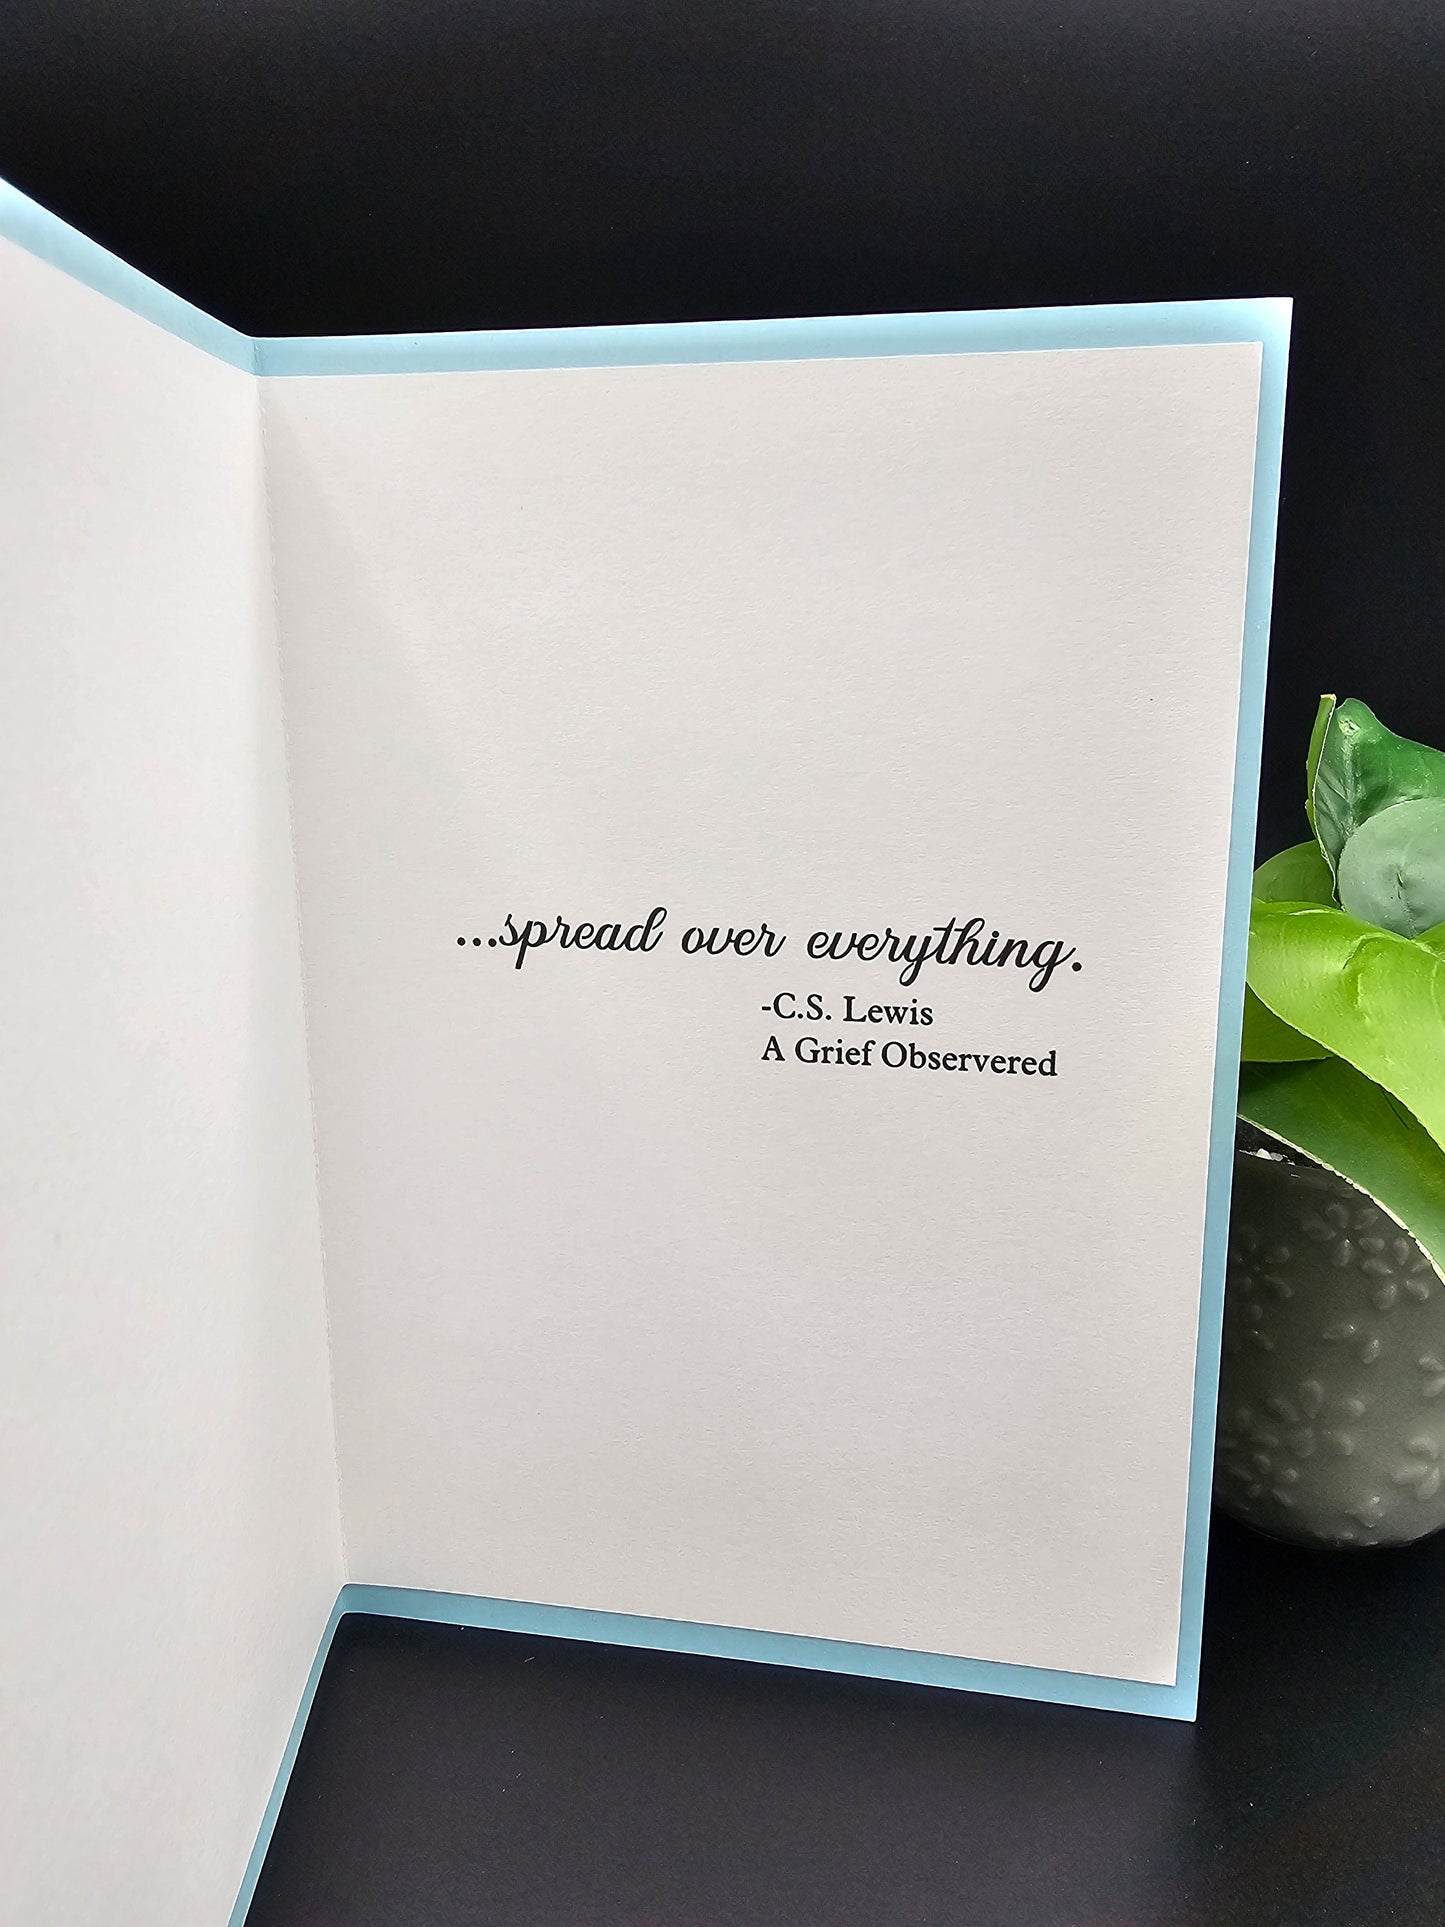 ...spread over everything.
-C.S. Lewis
A Grief Observered